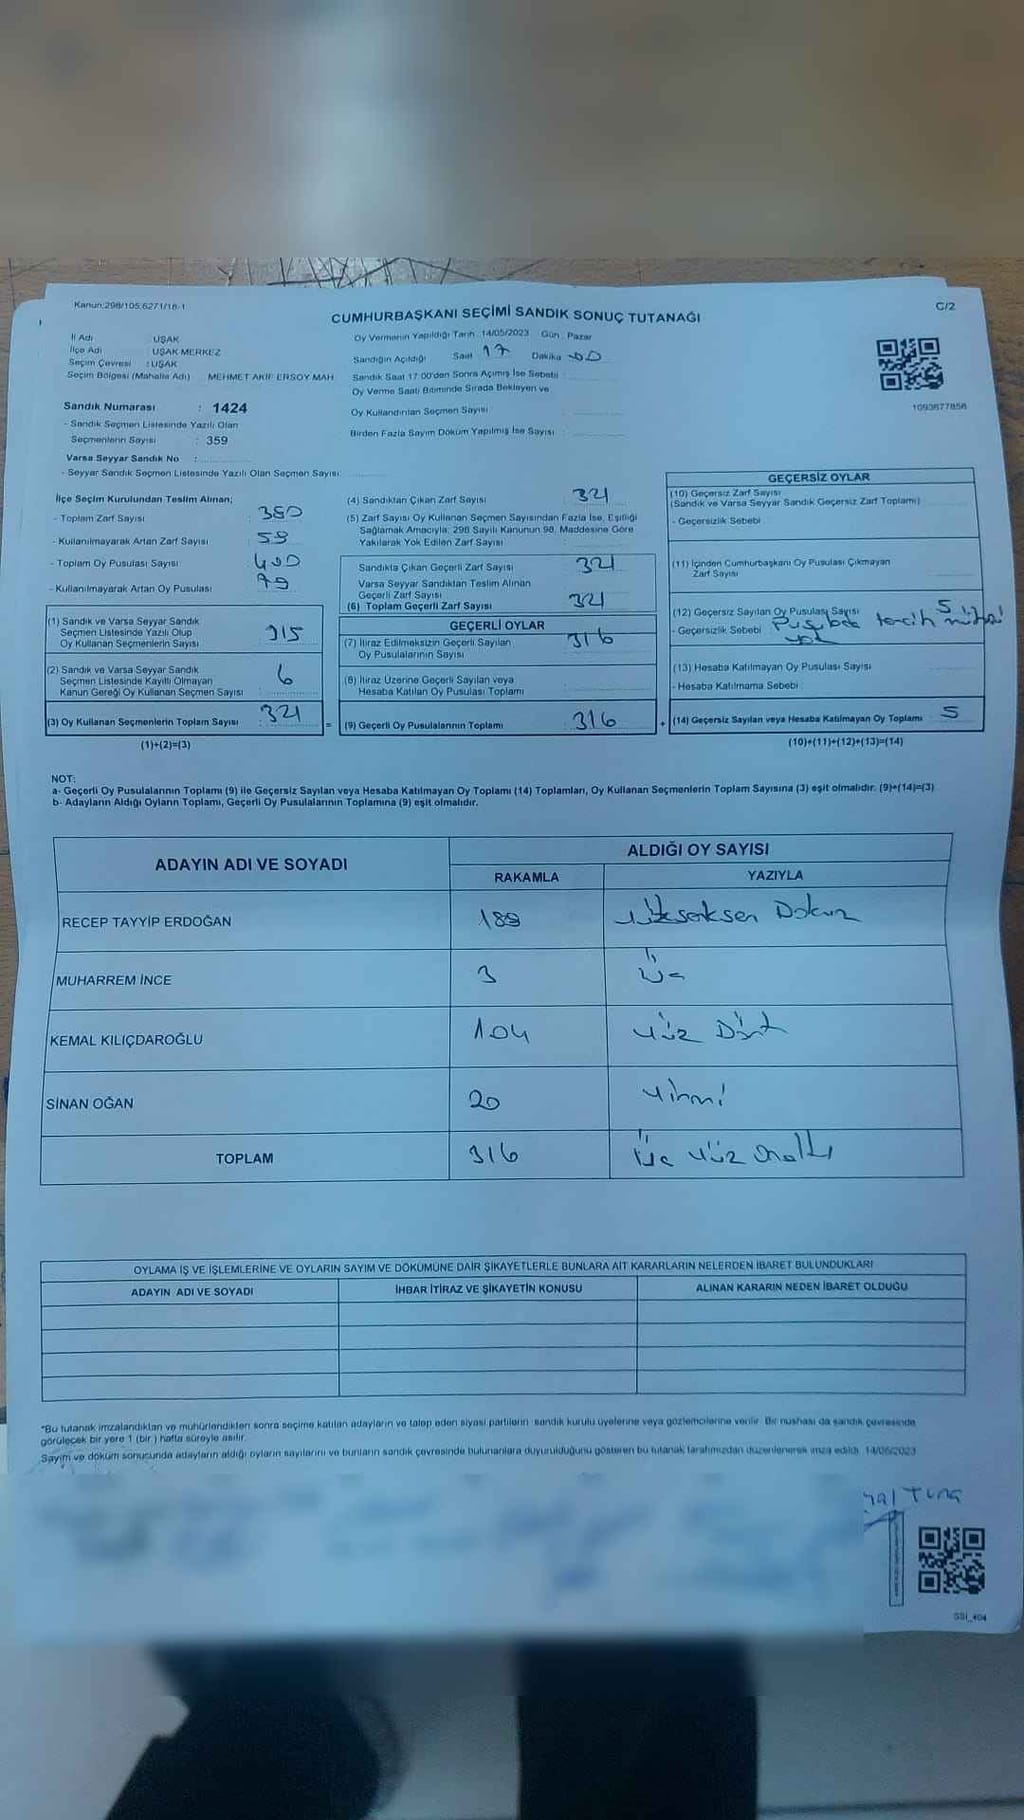 Kanun:298/105,6271/18-1
C/2
CUMHURBAŞKANI SEÇİMİ SANDIK SONUÇ TUTANAĞI
İl Adı : UŞAK
İlçe Adı : UŞAK MERKEZ
Seçim Çevresi : UŞAK
Seçim Bölgesi (Mahalle Adı) MEHMET AKİF ERSOY MAH
Oy Vermenin Yapıldığı Tarih : 14/05/2023 Gün : Pazar
Sandığın Açıldığı Saat 17 Dakika 00
Sandık Saat 17:00'den Sonra Açımış İse Sebebi :
Oy Verme Saati Bitiminde Sırada Bekleyen ve
Oy Kullandırılan Seçmen Sayısı :
Birden Fazla Sayım Döküm Yapılmış İse Sayısı :
1093677858
Sandık Numarası : 1424
- Sandık Seçmen Listesinde Yazılı Olan
Seçmenlerin Sayısı : 359
Varsa Seyyar Sandık No :
- Seyyar Sandık Seçmen Listesinde Yazılı Olan Seçmen Sayısı:
İlçe Seçim Kurulundan Teslim Alınan;
- Toplam Zarf Sayısı : 380
- Kullanılmayarak Artan Zarf Sayısı : 59
- Toplam Oy Pusulası Sayısı : 400
- Kullanılmayarak Artan Oy Pusulası : 79
(1) Sandık ve Varsa Seyyar Sandık
Seçmen Listesinde Yazılı Olup
Oy Kullanan Seçmenlerin Sayısı 315
(2) Sandık ve Varsa Seyyar Sandık
Seçmen Listesinde Kayıtlı Olmayan
Kanun Gereği Oy Kullanan Seçmen Sayısı 6
(3) Oy Kullanan Seçmenlerin Toplam Sayısı : 321
(1)+(2)=(3)
(4) Sandıktan Çıkan Zarf Sayısı 321
(5) Zarf Sayısı Oy Kullanan Seçmen Sayısından Fazla İse, Eşitliği
Sağlamak Amacıyla; 298 Sayılı Kanunun 98. Maddesine Göre
Yakılarak Yok Edilen Zarf Sayısı :
Sandıkta Çıkan Geçerli Zarf Sayısı 321
Varsa Seyyar Sandıktan Teslim Alınan
Geçerli Zarf Sayısı
(6) Toplam Geçerli Zarf Sayısı 321
GEÇERLİ OYLAR
(7) İtiraz Edilmeksizin Geçerli Sayılan
Oy Pusulalarının Sayısı 316
(8) İtiraz Üzerine Geçerli Sayılan veya
Hesaba Katılan Oy Pusulası Toplamı
= (9) Geçerli Oy Pusulalarının Toplamı 316
GEÇERSİZ OYLAR
(10) Geçersiz Zarf Sayısı
(Sandık ve Varsa Seyyar Sandık Geçersiz Zarf Toplamı)
- Geçersizlik Sebebi
(11) İçinden Cumhurbaşkanı Oy Pusulası Çıkmayan
Zarf Sayısı
(12) Geçersiz Sayılan Oy Pusulası Sayısı 5
- Geçersizlik Sebebi Pusulada tercih mührü
yok
(13) Hesaba Katılmayan Oy Pusulası Sayısı
- Hesaba Katılmama Sebebi
+ (14) Geçersiz Sayılan veya Hesaba Katılmayan Oy Toplamı 5
(10)+(11)+(12)+(13)=(14)
NOT:
a- Geçerli Oy Pusulalarının Toplamı (9) ile Geçersiz Sayılan veya Hesaba Katılmayan Oy Toplamı (14) Toplamları, Oy Kullanan Seçmenlerin Toplam Sayısına (3) eşit olmalıdır. (9)+(14)=(3)
b- Adayların Aldığı Oyların Toplamı, Geçerli Oy Pusulalarının Toplamına (9) eşit olmalıdır.
ADAYIN ADI VE SOYADI ALDIĞI OY SAYISI
RAKAMLA YAZIYLA
RECEP TAYYİP ERDOĞAN 189 Yüzseksen Dokuz
MUHARREM İNCE 3 Üç
KEMAL KILIÇDAROĞLU 104 Yüz Dört
SİNAN OĞAN 20 Yirmi
TOPLAM 316 Üç Yüz Onaltı
OYLAMA İŞ VE İŞLEMLERİNE VE OYLARIN SAYIM VE DÖKÜMÜNE DAİR ŞİKAYETLERLE BUNLARA AİT KARARLARIN NELERDEN İBARET BULUNDUKLARI
ADAYIN ADI VE SOYADI İHBAR İTİRAZ VE ŞİKAYETİN KONUSU ALINAN KARARIN NEDEN İBARET OLDUĞU
*Bu tutanak imzalandıktan ve mühürlendikten sonra seçime katılan adayların ve talep eden siyasi partilerin sandık kurulu üyelerine veya gözlemcilerine verilir. Bir nüshası da sandık çevresinde
görülecek bir yere 1 (bir) hafta süreyle asılır.
Sayım ve döküm sonucunda adayların aldığı oyların sayılarını ve bunların sandık çevresinde bulunanlara duyurulduğunu gösteren bu tutanak tarafımızdan düzenlenerek imza edildi. 14/05/2023
SSI_404